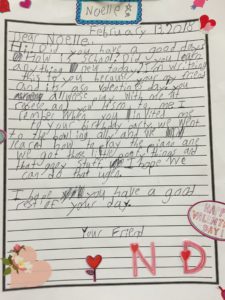 Noelle
February 13, 2018
Dear Noelle,
Hi! Did you have a good day?
How is school? Did you learn
any thing new today? I'm writing
this to you because your my friend
and its also Valentines day. you
always play with me at
recess and you listen to me. I
remember when you invited me
to your birthday party we went
to the bowling ally and we
learned how to play the piano and
we got those things at
that party. I hope we
can do that agen.
I hope you have a good
rest of your day.
Your Friend
N D
HAPPY
VALENTINE'S
DAY!